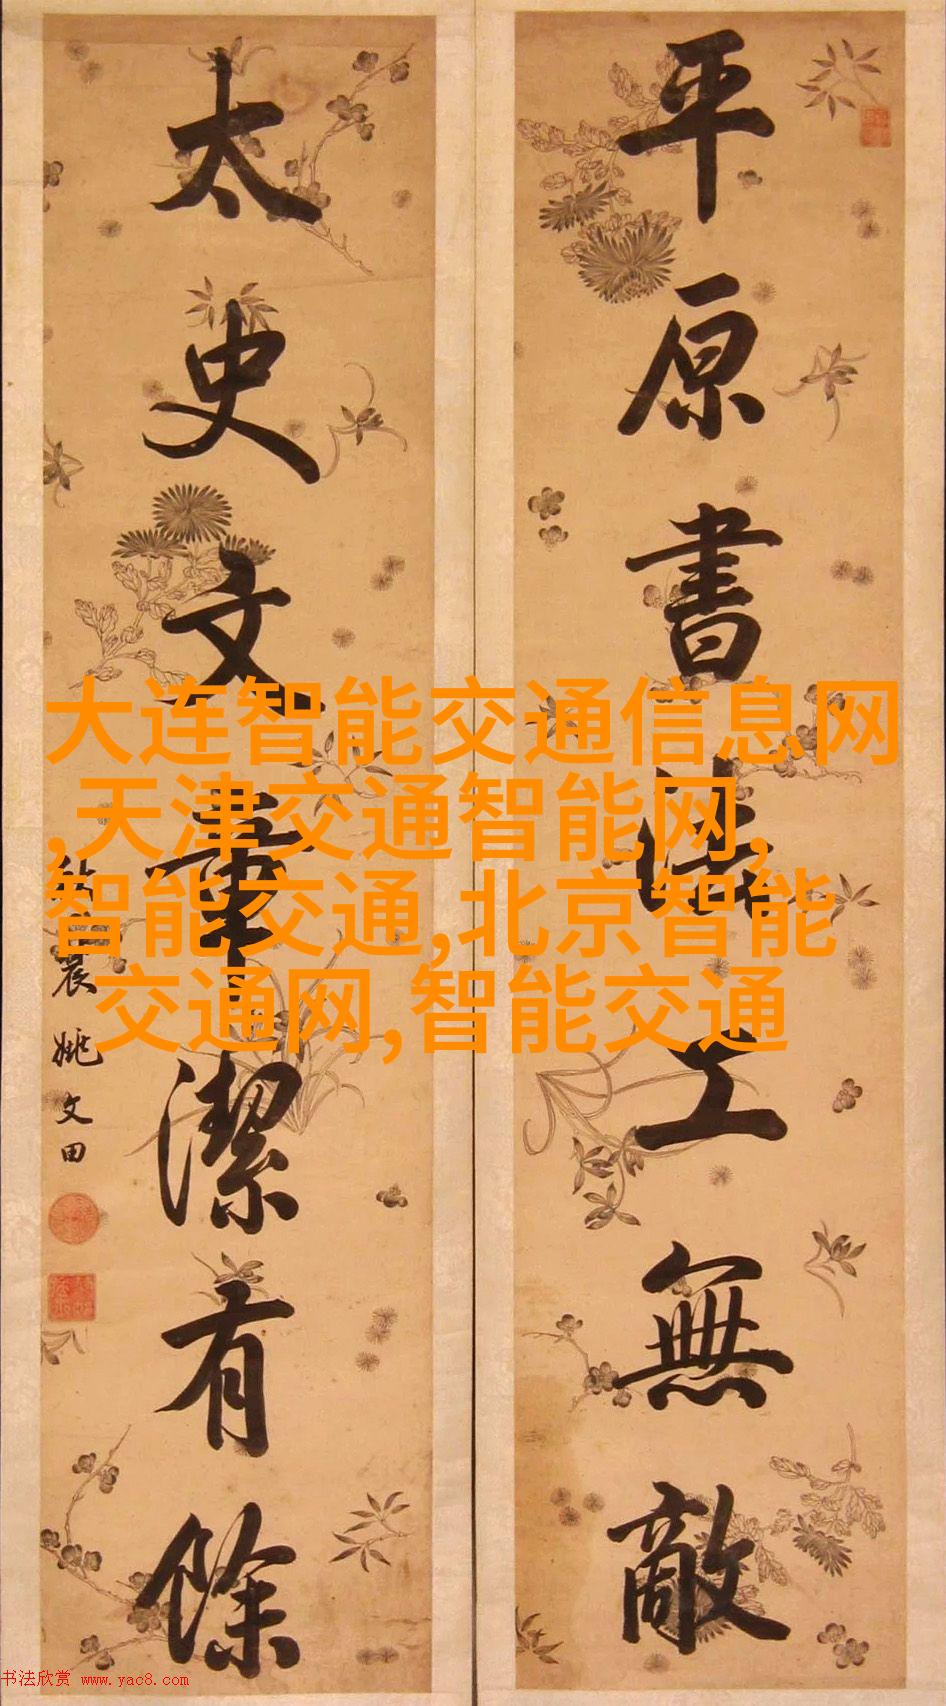 平原書法工無敵
太史文章潔有餘
姚文田
大连智能交通信息网
,天津交通智能网,
智能交通,北京智能
交通网,智能交通
书法欣赏 www.yac8.com